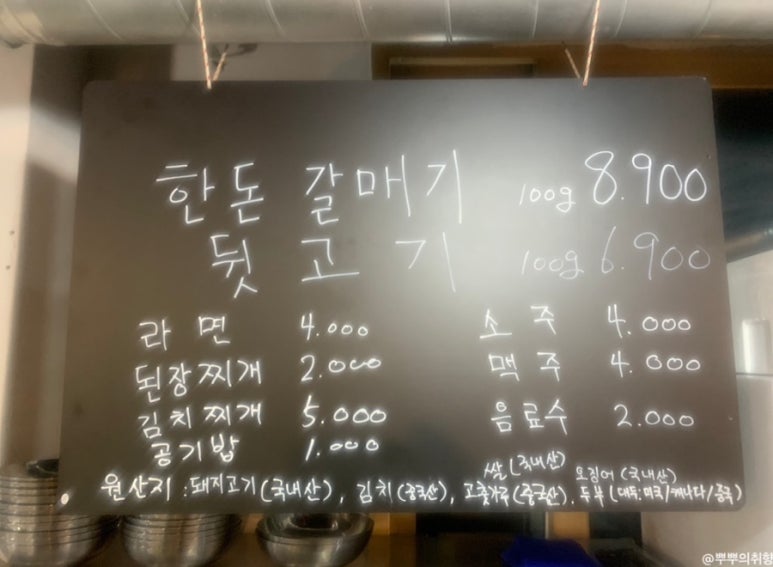 한돈 갈매기 100g 8.900
뒷고기 100g 6.900
라면 4.000
된장찌개 2.000
김치찌개 5.000
공기밥 1.000
소주 4.000
맥주 4.000
음료수 2.000
쌀(국내산) 오징어(국내산)
원산지 : 돼지고기(국내산), 김치(중국산), 고춧가루(중국산). 두부(대두:미국/캐나다/중국)
@뿌뿌의취향